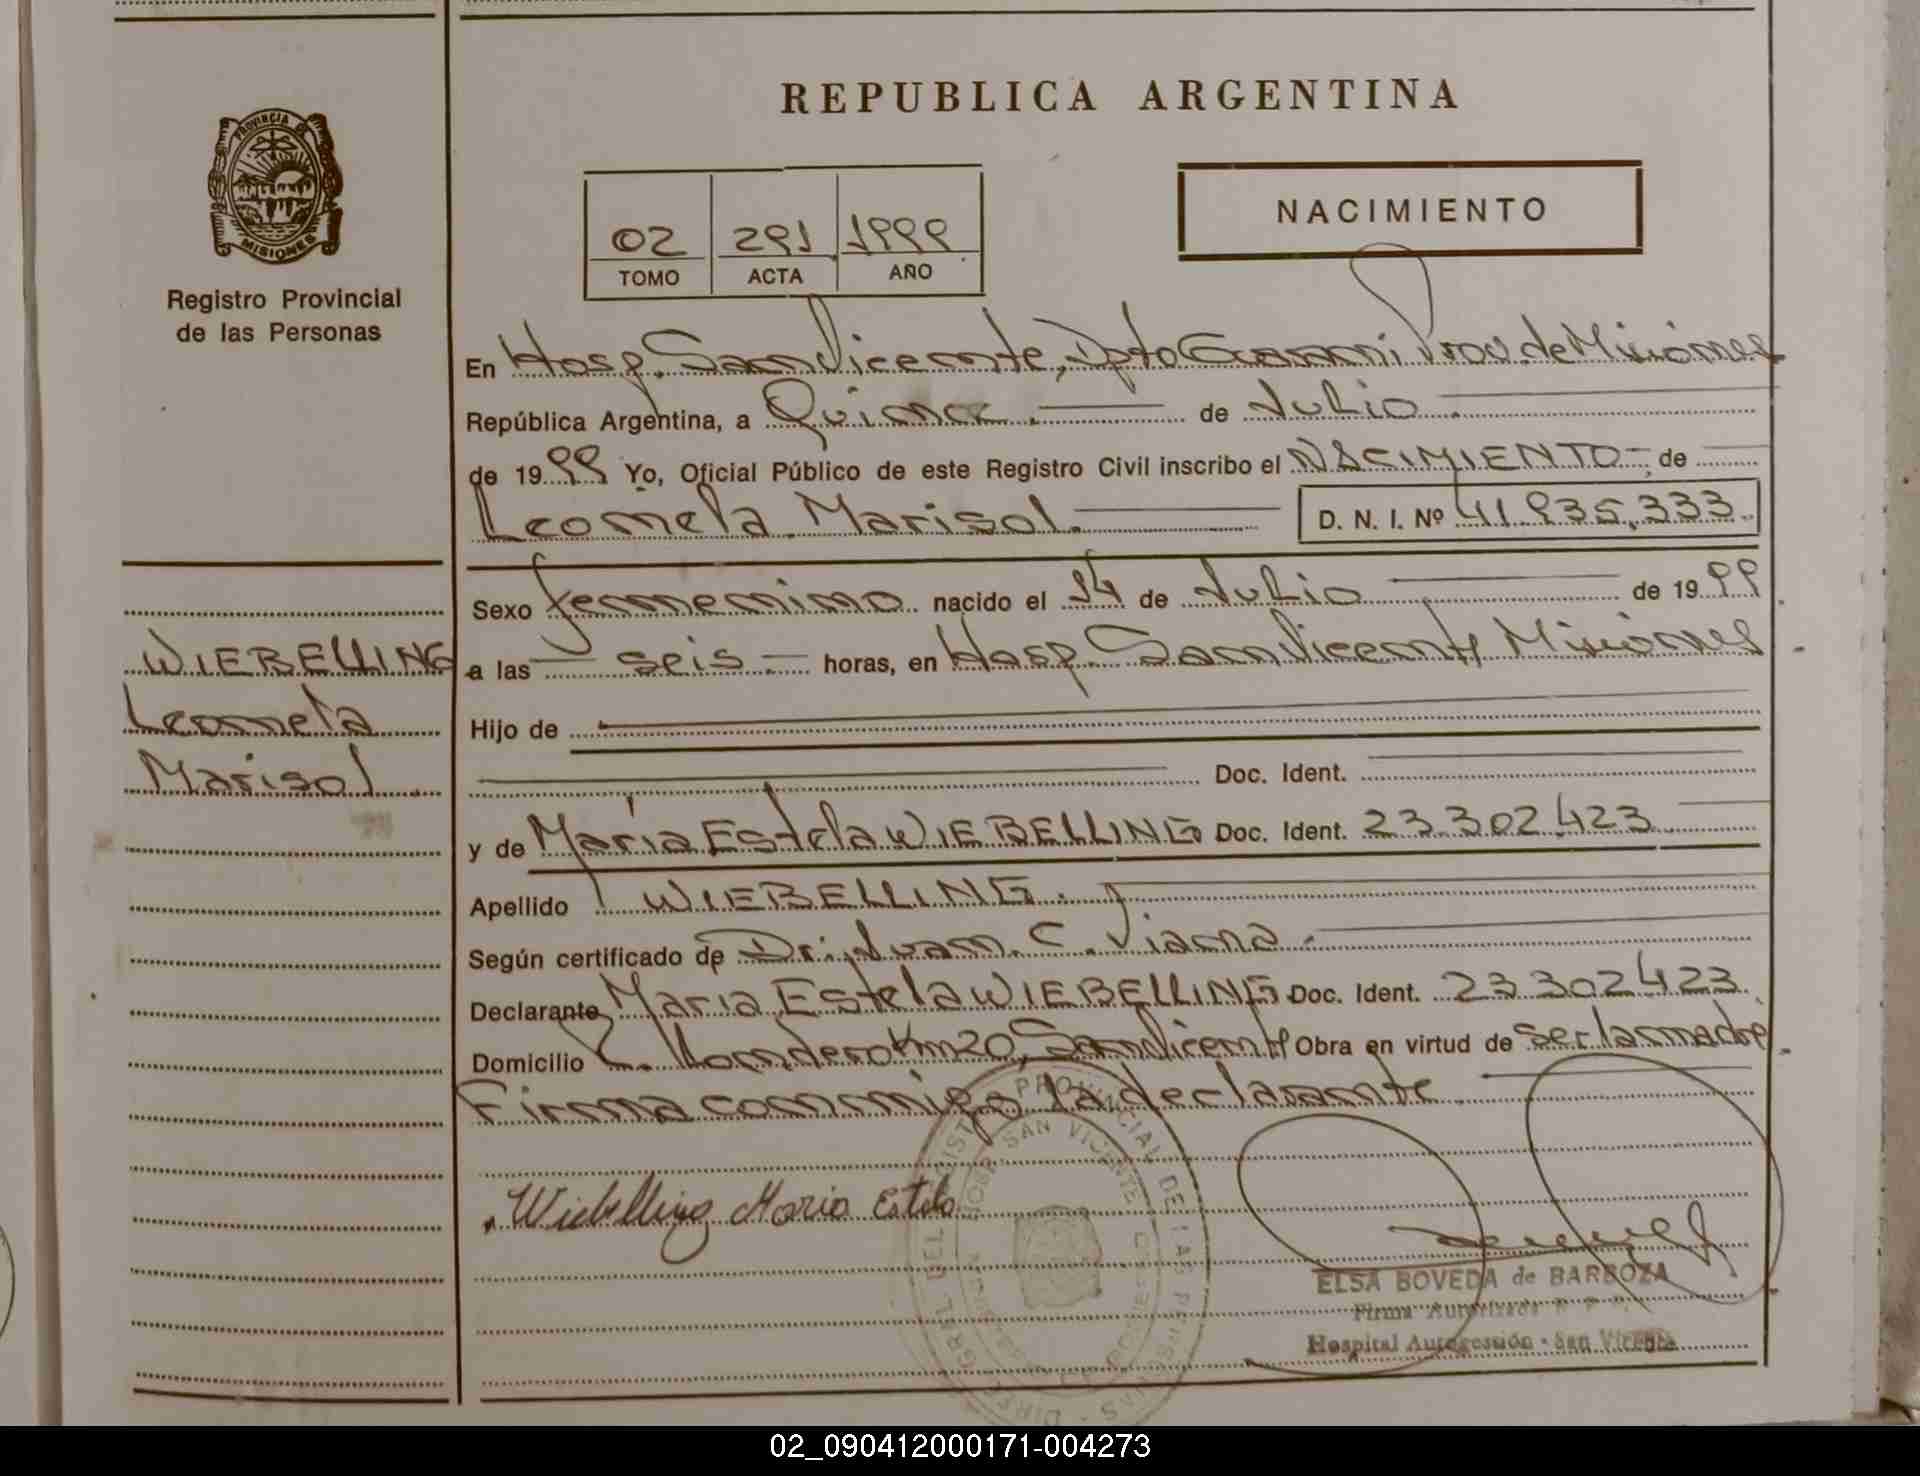 REPUBLICA ARGENTINA
PROVINCIA DE
MISIONES
Registro Provincial
de las Personas
02 291 1999
TOMO ACTA AÑO
NACIMIENTO
En Hosp. San Vicente, Dpto Guarani Prov. de Misiones
República Argentina, a Quince de Julio
de 1999 Yo, Oficial Público de este Registro Civil inscribo el NACIMIENTO de
Leonela Marisol D. N. I. Nº 41.935.333
Sexo femenino nacido el 14 de Julio de 1999
a las seis horas, en Hosp. San Vicente Misiones
Hijo de
Doc. Ident.
y de María Estela WIEBELLING Doc. Ident. 23.302.423
Apellido WIEBELLING.
Según certificado de Dr. Juan. C. Viana
Declarante Maria Estela WIEBELLING Doc. Ident. 23302423
Domicilio Km20, San Vicente Obra en virtud de ser la madre
Firma conmigo la declarante
WIEBELLING
Leonela
Marisol
Wiebelling Maria Estela
DIREC. GRAL. DEL REGIST. PROVINCIAL DE LAS PERSONAS
SAN VICENTE
ELSA BOVEDA de BARBOZA
Firma Autorizada
Hospital Autogestión - San Vicente
02_090412000171-004273